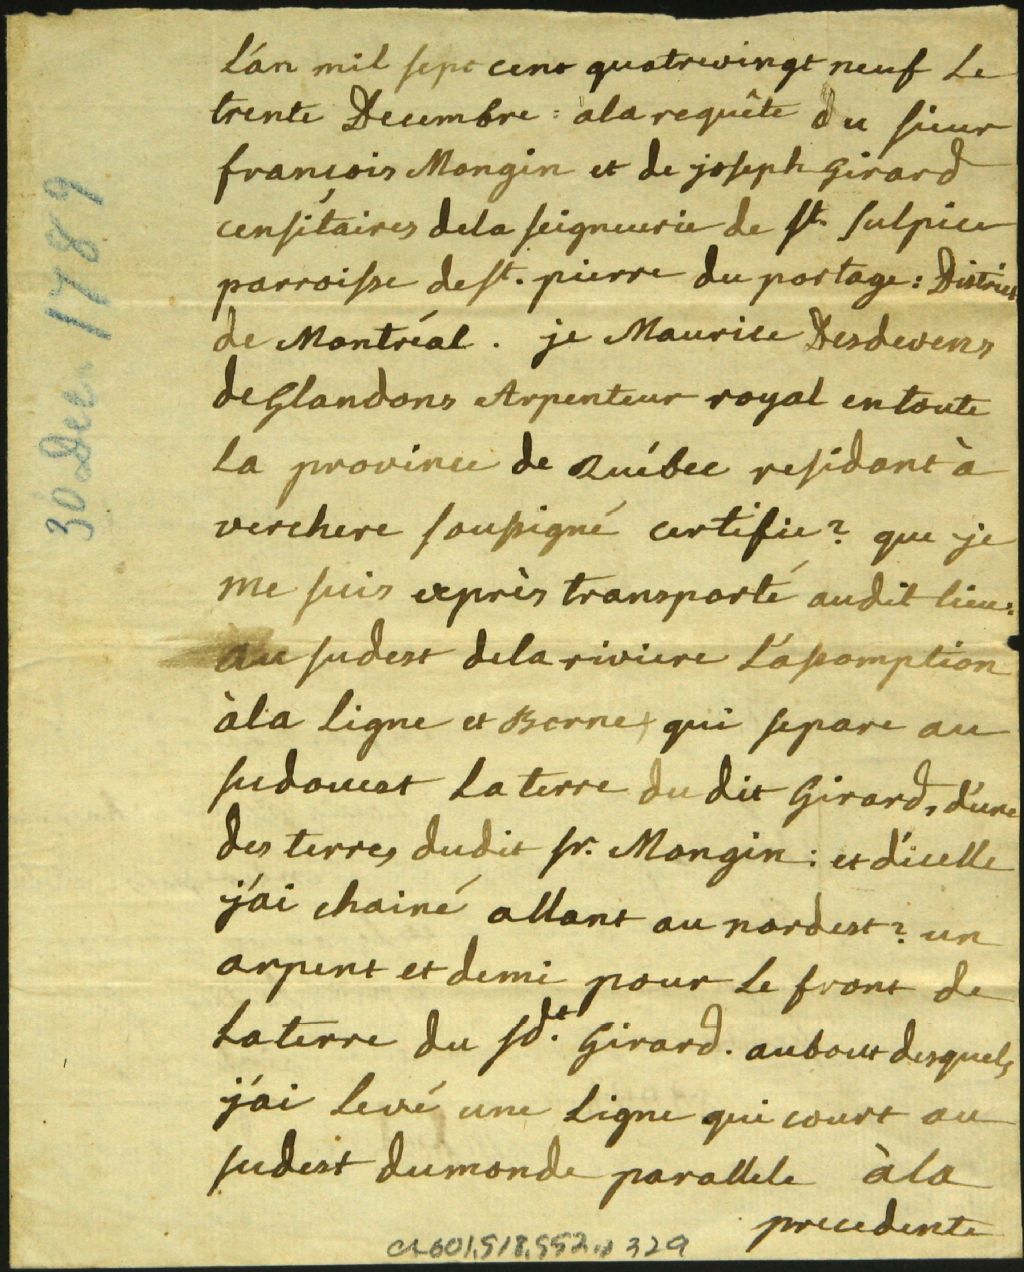 L'an mil sept cent quatrevingt neuf Le
trente Decembre : ala requête du sieur
françois Mongin et de joseph Girard
censitaires dela seigneurie de st. sulpice
parroisse de st. pierre du portage : District
de Montréal . je Maurice Desdevens
de Glandons Arpenteur royal en toute
La province de Québec residant à
verchere soussigné certifie ? que je
me suis exprès transporté audit lieu :
au sudest dela riviere L'assomption
àla Ligne et Borne qui separe au
sudouest La terre du dit Girard, d'une
des terres dudit sr. Mongin : et d'icelle
j'ai chainé allant au nordest ? un
arpent et demi pour Le front de
La terre du sdt. Girard . aubout desquels
j'ai Levé une Ligne qui court au
sudest dumonde parallele àla
precedente
30 Dec. 1789
601,518,552 329